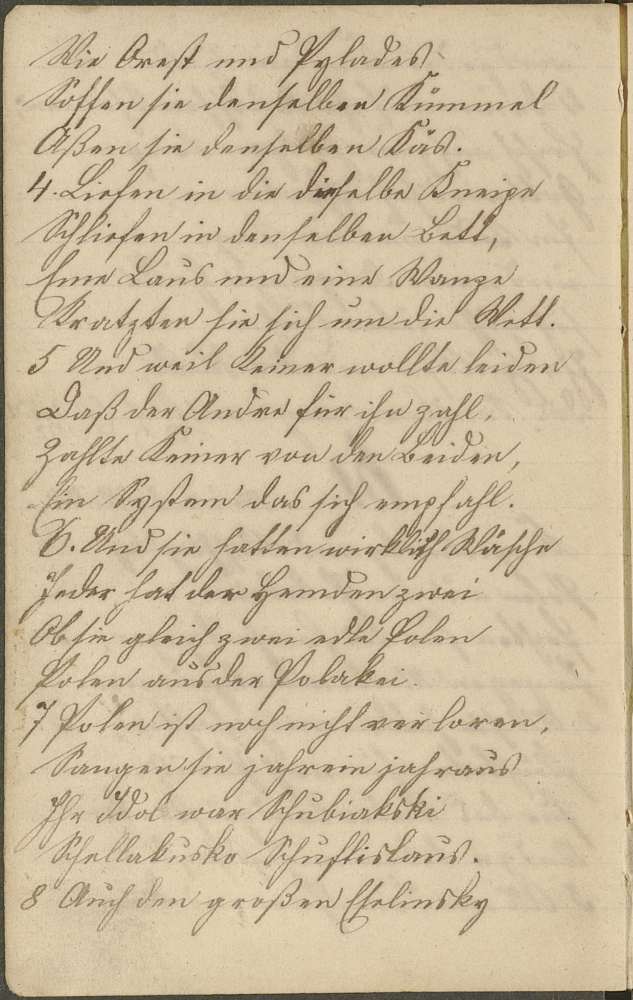 Wie Orest und Pylades
Soffen sie denselben Kümmel
Aßen sie denselben Käs.
4. Liefen in die dieselbe Kneipe
Schliefen in denselben Bett,
Eine Laus und eine Wanze
Kratzten sie sich um die Wett.
5 Und weil Keiner wollte leiden
Daß der Andre für ihn zahl,
Zahlte Keiner von den Beiden,
Ein System das sich empfahl.
6. Und sie hatten wirklich Wäsche
Jeder hat der Hemden zwei
Ob sie gleich zwei edle Polen
Polen aus der Polakei.
7 Polen ist noch nicht verloren,
Sangen sie jahrein jahraus
Ihr Idol war Schubiakski
Schellakusko Schuftislaus.
8 Auch den großen Eselinsky